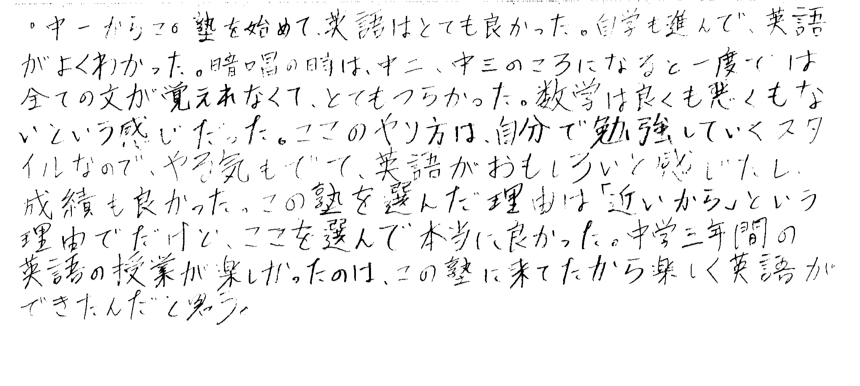 ・中一からこの塾を始めて、英語はとても良かった。自学も進んで、英語
がよくわかった。暗唱の時は、中二、中三のころになると一度では
全ての文が覚えれなくて、とてもつらかった。数学は良くも悪くもな
いという感じだった。ここのやり方は、自分で勉強していくスタ
イルなので、やる気もでて、英語がおもしろいと感じたし、
成績も良かった。この塾を選んだ理由は「近いから」という
理由でだけど、ここを選んで本当に良かった。中学三年間の
英語の授業が楽しかったのは、この塾に来てたから楽しく英語が
できたんだと思う。